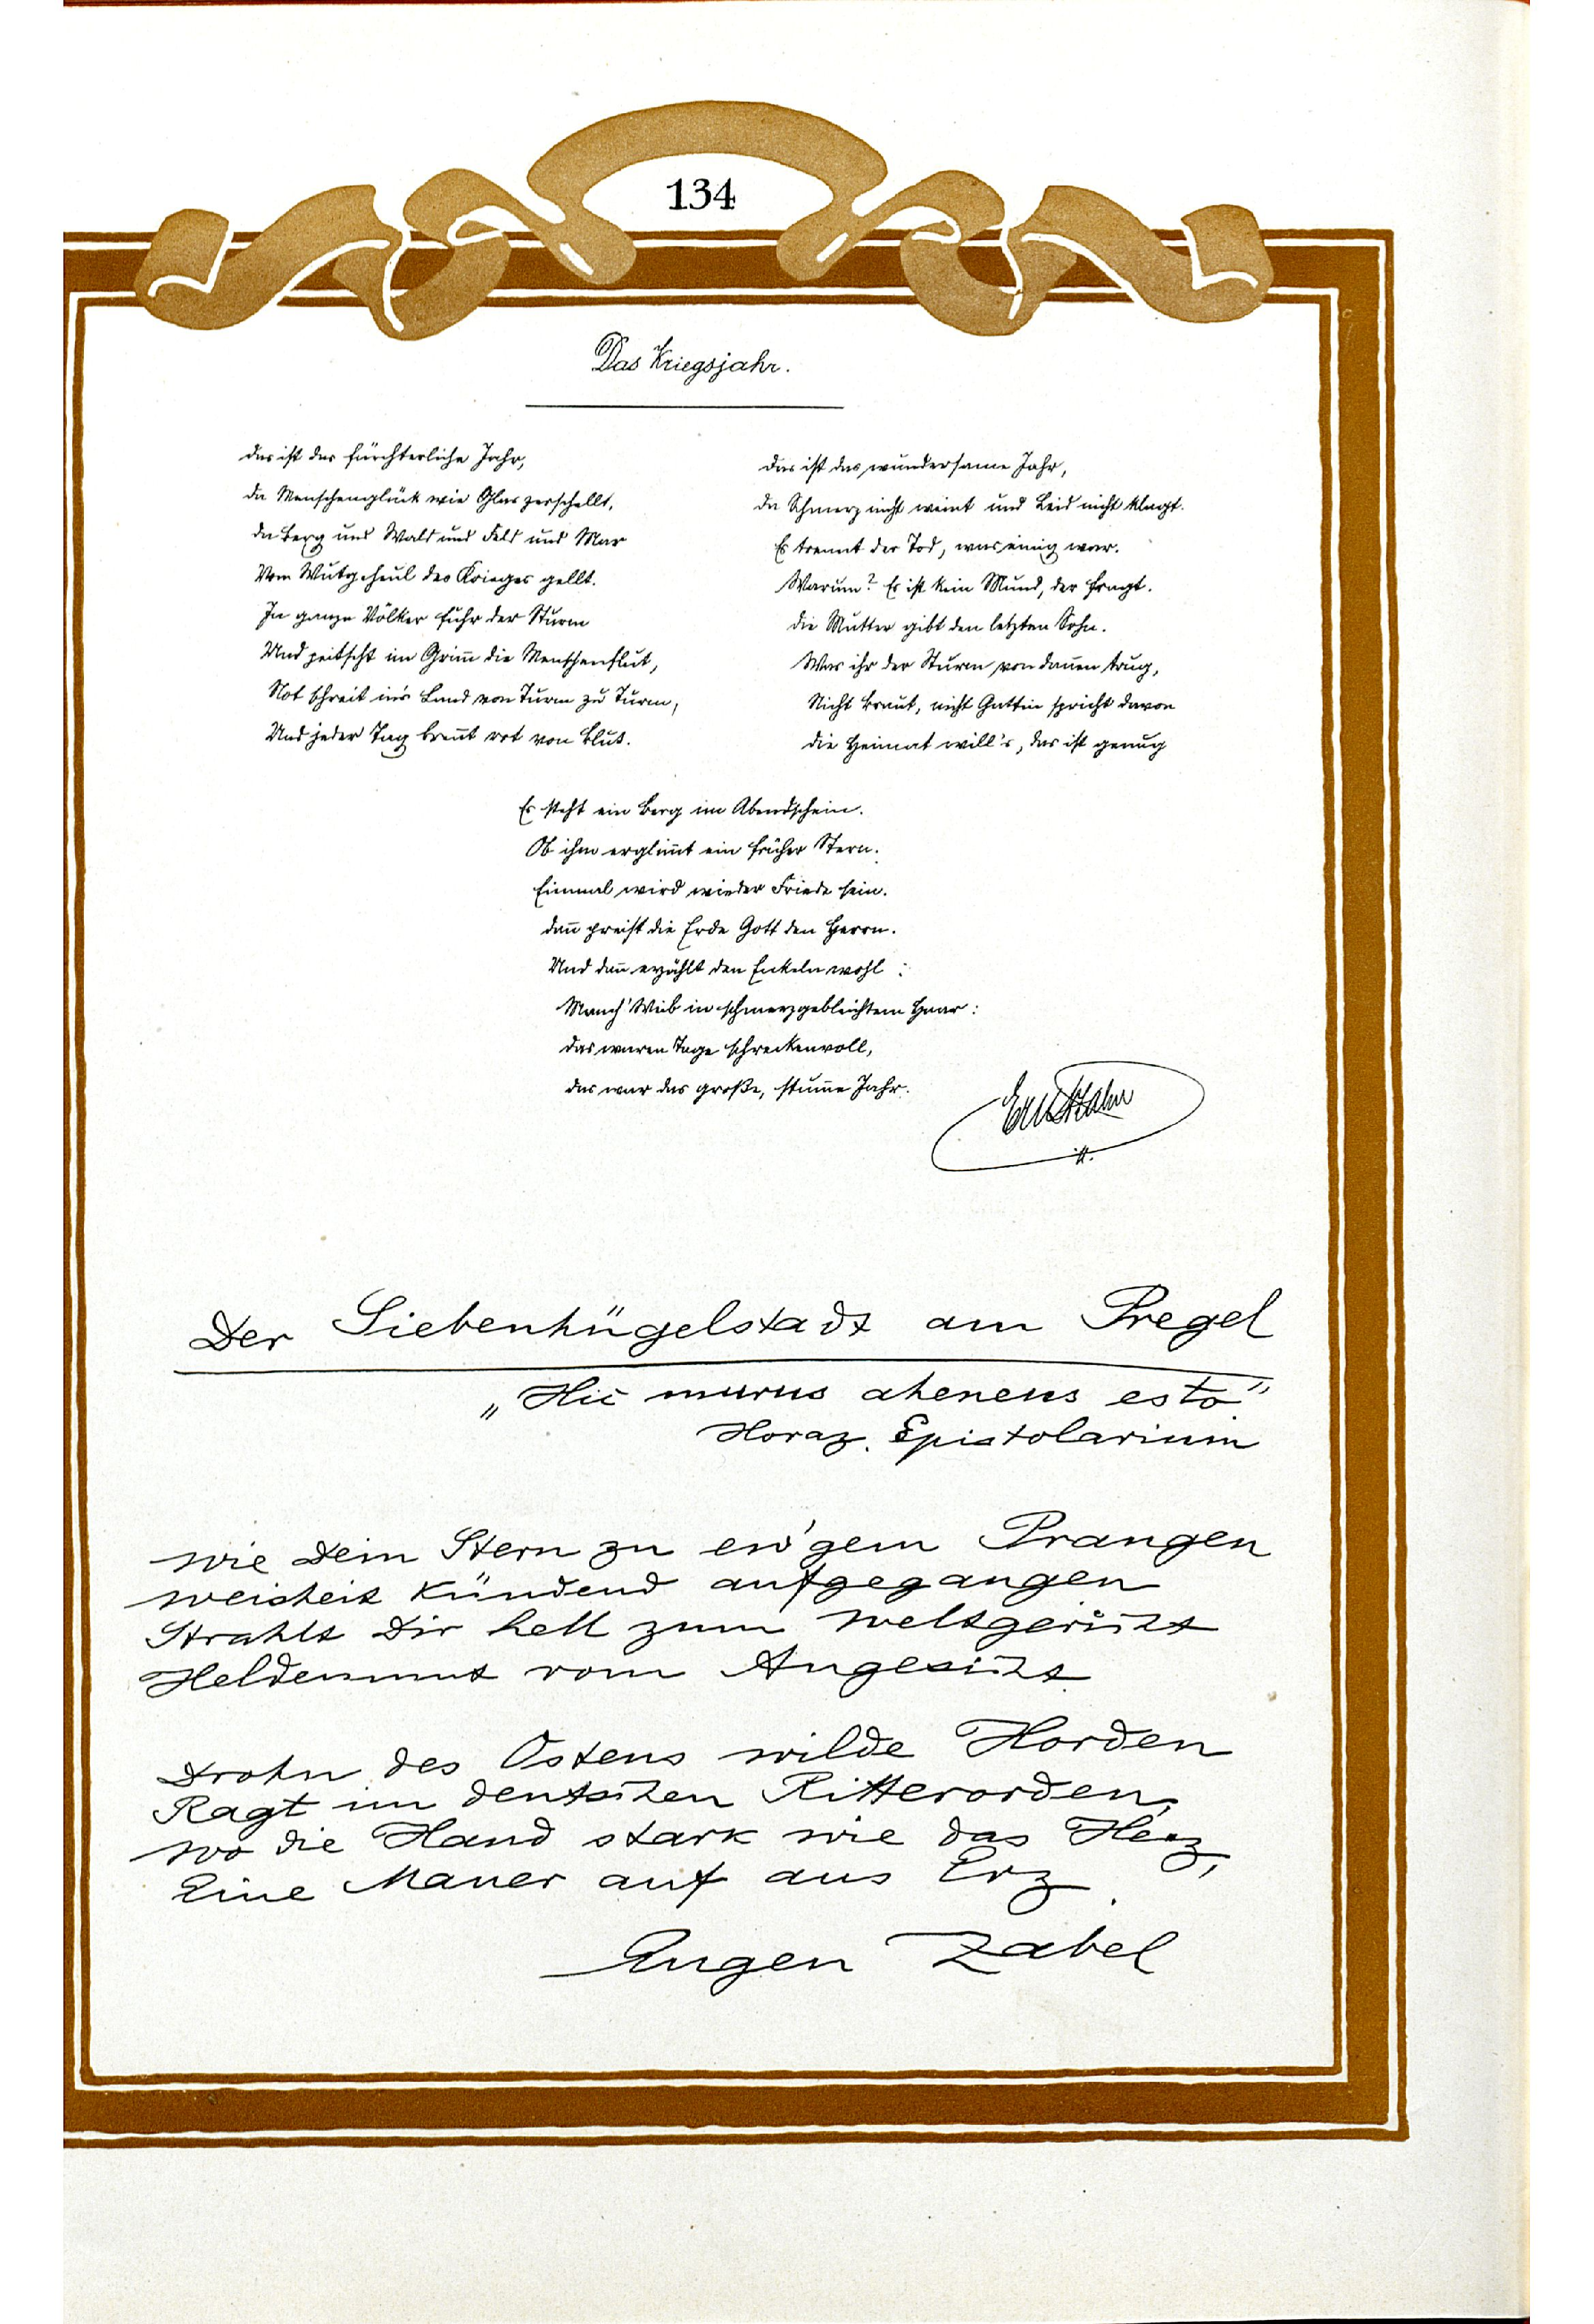 134
Das Kriegsjahr.
Das ist das fürchterliche Jahr,
Da Menschenglück wie Glas zerschellt,
Da Berg und Wald und Feld und Mar
Vom Wutgeheul des Krieges gellt.
In ganze Völker fuhr der Sturm
Und peitscht im Grim̅ die Menschenflut,
Not schreit in's Land von Turm zu Turm,
Und jeder Tag bren̅t rot von Blut.
Das ist das wundersame Jahr,
Da Schmerz nicht weint und Leid nicht klagt.
Es trennt der Tod, was einig war.
Warum? Es ist kein Mund, der fragt.
Die Mutter gibt den letzten Sohn.
Was ihr der Sturm von dan̅en trug,
Nicht Braut, nicht Gattin spricht davon
Die Heimat will's, das ist genug
Es steht ein Berg im Abendschein.
Ob ihm erglim̅t ein früher Stern.
Einmal wird wieder Friede sein.
Dan̅ preist die Erde Gott den Herrn.
Und dan̅ erzählt den Enkeln wohl :
Manch' Weib in schmerzgebleichtem Haar:
Das waren Tage schreckenvoll,
Das war das große, stum̅e Jahr.
Ernst Zahn
Der Siebenhügelstadt am Pregel
„Hic murus aheneus esto"
Horaz. Epistolarium
Wie Dein Stern zu ew'gem Prangen
Weisheit kündend aufgegangen
Strahlt Dir hell zum Weltgericht
Heldenmut vom Angesicht.
Drohn des Ostens wilde Horden
Ragt im deutschen Ritterorden,
Wo die Hand stark wie das Herz,
Eine Mauer auf aus Erz.
Eugen Zabel